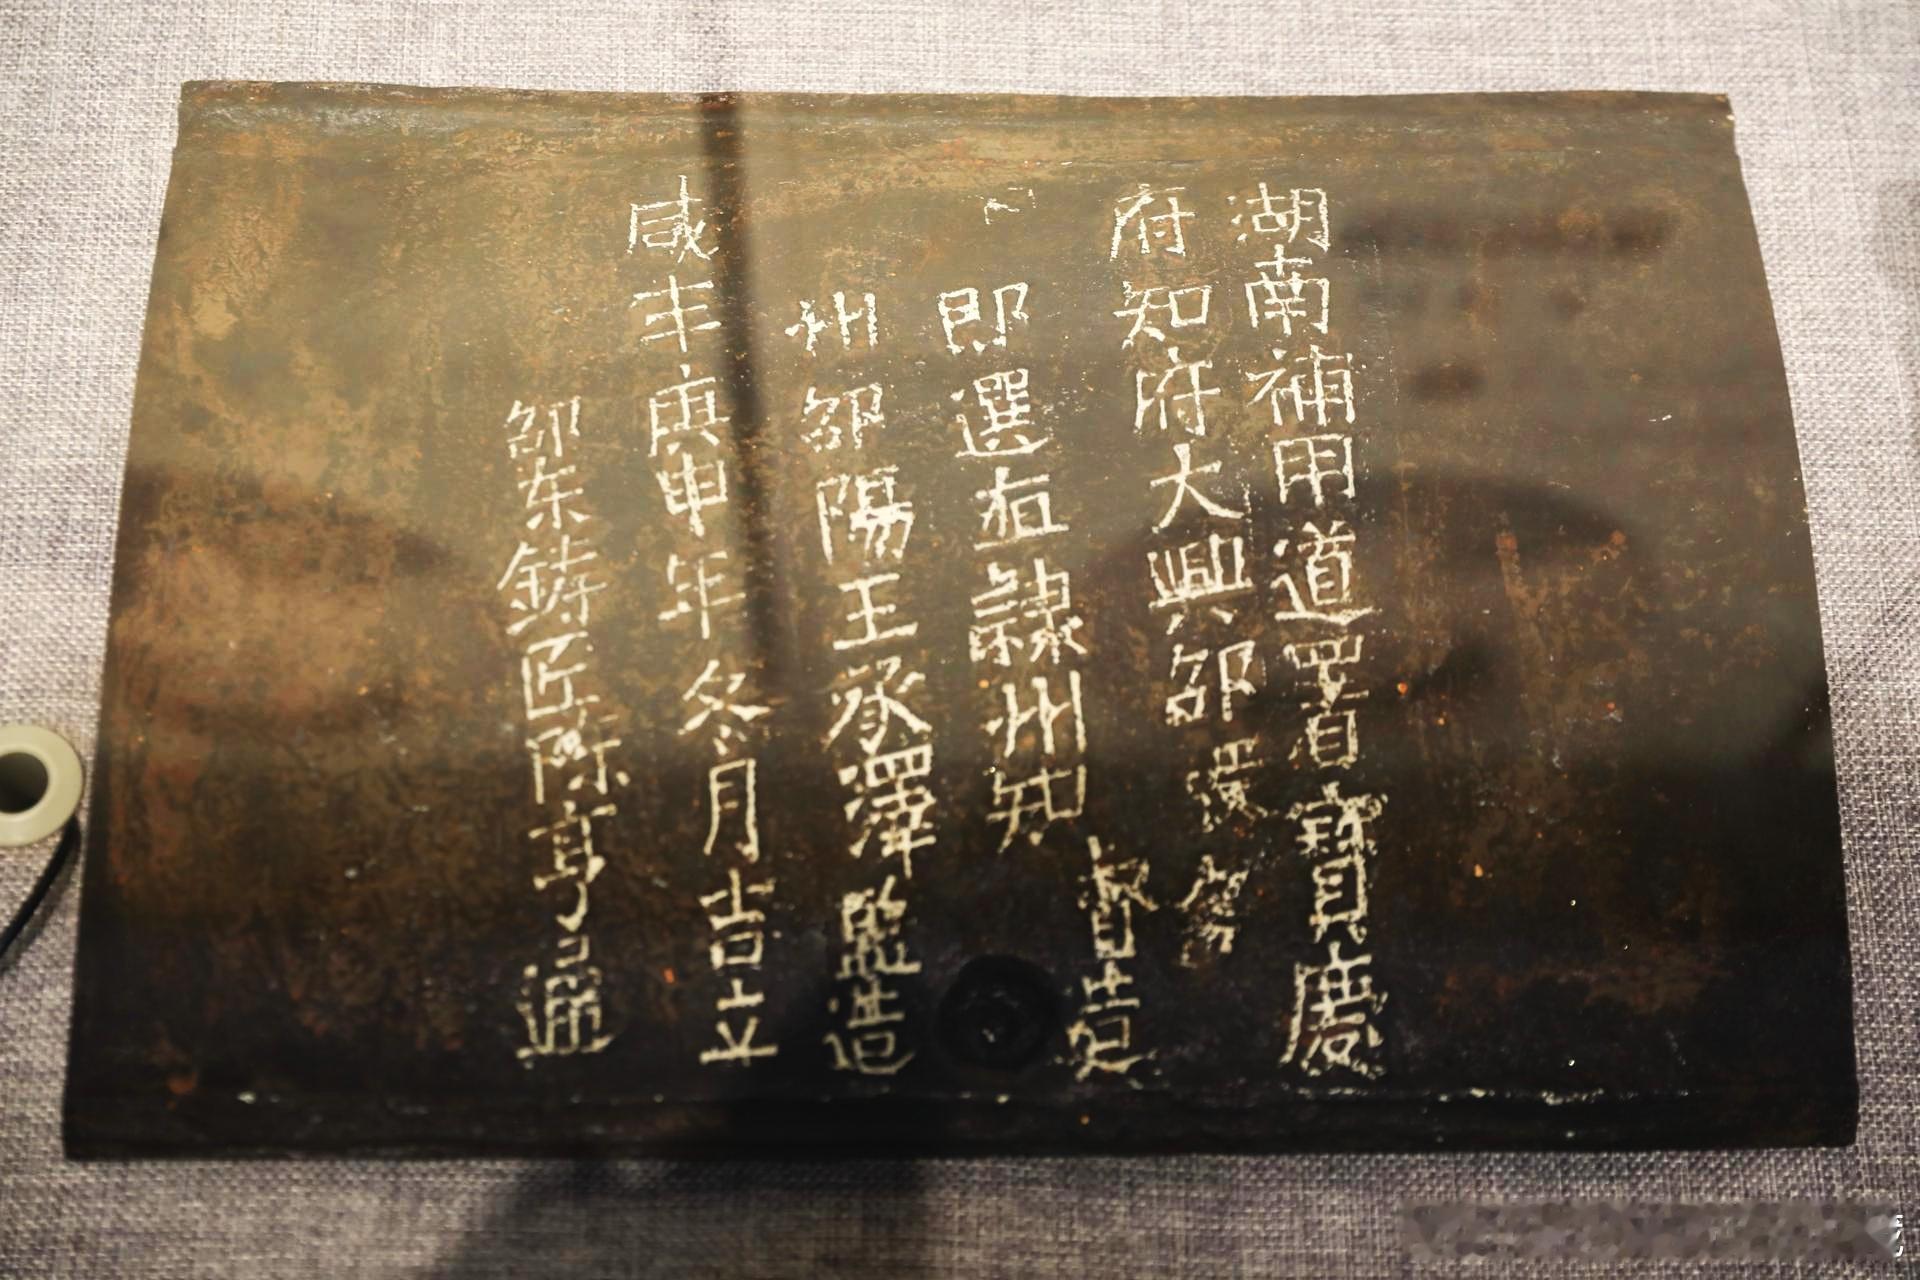 湖南補用道署寶慶
府知府大興邵
督造
即選直隸州知
州邵陽王承澤監造
咸丰庚申年冬月吉立
邵东鋳匠陈亨通